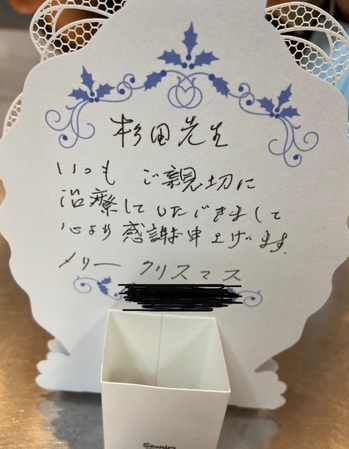 杉田先生
いつも ご親切に
治療していただきまして
心より感謝お申上げます.
メリー クリスマス
Sanrio